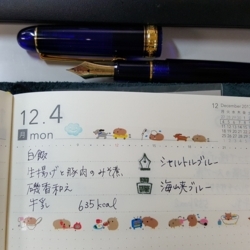 12.4
月 mon
12 December
白飯
生揚げと豚肉のみそ煮
磯香和え
牛乳 635kcal
シャルトルブルー
海峡ブルー